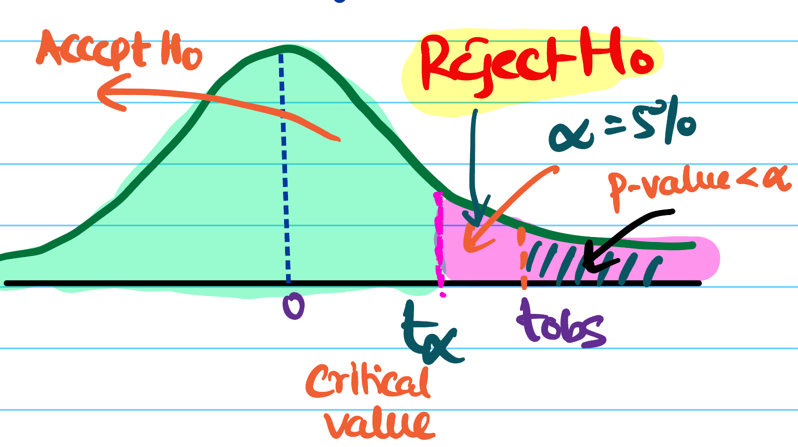 Acccpt H0
Reject H0
α = 5%
p-value < α
0
tα
tobs
Critical
value